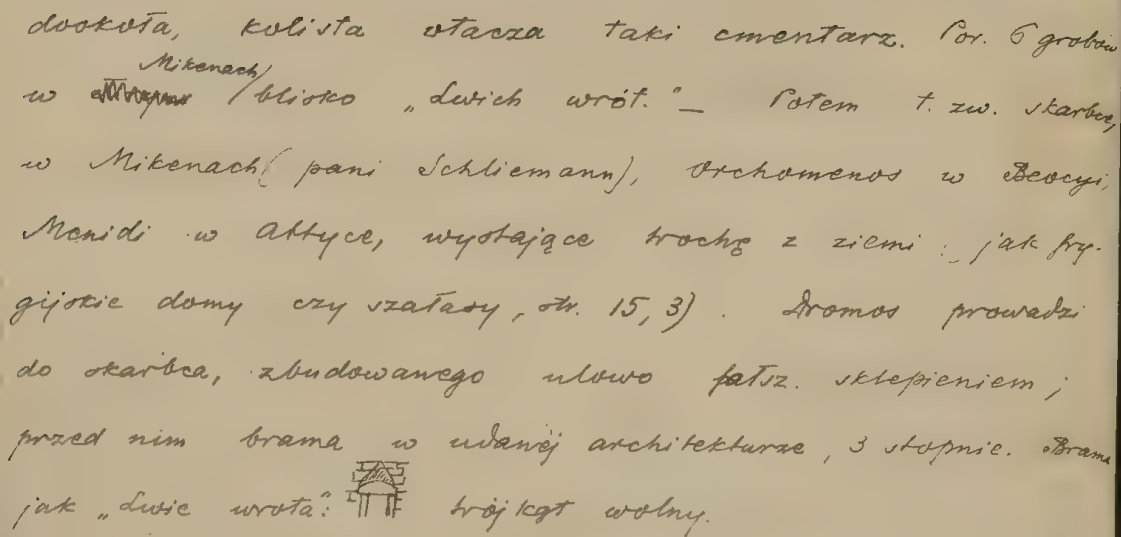 dookoła, kolista otacza taki cmentarz. Por. 6 grobów
Mikenach/
w /blisko „Lwich wrót.“— Potem t. zw. skarbce,
w Mikenach (pani Schliemann), Orchomenos w Beocyi,
Menidi w Attyce, wystające trochę z ziemi: jak fry-
gijskie domy czy szałasy, str. 15, 3). Dromos prowadzi
do skarbca, zbudowanego ulowo fałsz. sklepieniem;
przed nim brama w udanéj architekturze, 3 stopnie. Brama
jak „Lwie wrota“: trójkąt wolny.